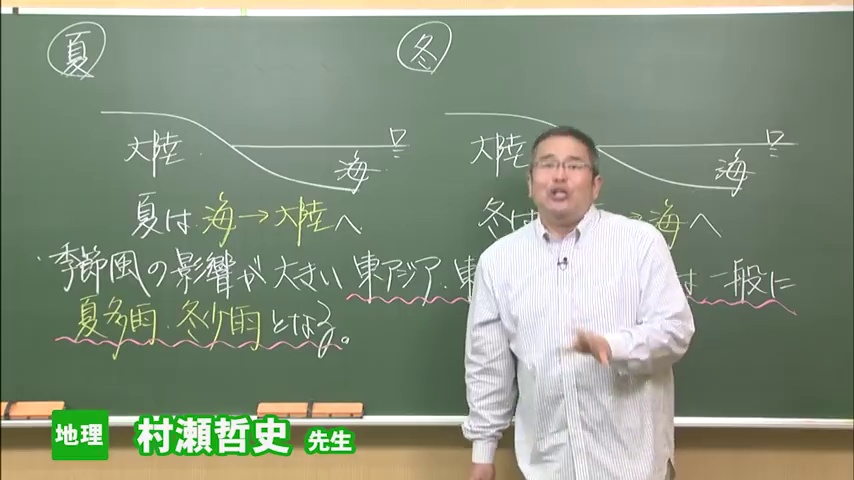 夏
冬
大陸
海
大陸
海
夏は 海→大陸へ
冬は →海へ
季節風の影響が大きい東アジア・東 は一般に
夏多雨・冬少雨となる。
地理 村瀬哲史 先生